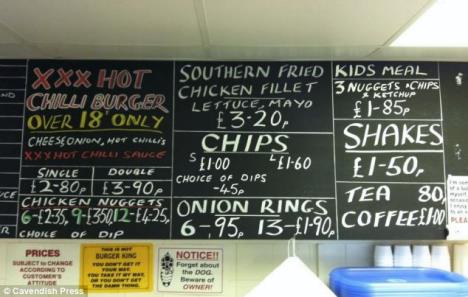 XXX HOT
CHILLI BURGER
OVER 18 ONLY
CHEESE, ONION, HOT CHILLI'S
XXX HOT CHILLI SAUCE
SINGLE DOUBLE
£2-80p £3-90p
CHICKEN NUGGETS
6-£2.35, 9-£3.50, 12-£4-25p
CHOICE OF DIP
SOUTHERN FRIED
CHICKEN FILLET
LETTUCE, MAYO
£3-20p
CHIPS
S £1.00 L £1-60
CHOICE OF DIPS
-45p
ONION RINGS
6-95p 13-£1-90p
KIDS MEAL
3 NUGGETS & CHIPS
& KETCHUP
£1-85p
SHAKES
£1-50p
TEA 80p
COFFEE £1.00
PRICES
SUBJECT TO CHANGE
ACCORDING TO
CUSTOMER'S
ATTITUDE
THIS IS NOT
BURGER KING
YOU DON'T GET IT
YOUR WAY.
YOU TAKE IT MY WAY,
OR YOU DON'T GET
THE DAMN THING.
NOTICE!!
Forget about
the DOG.
Beware of
OWNER!
© Cavendish Press